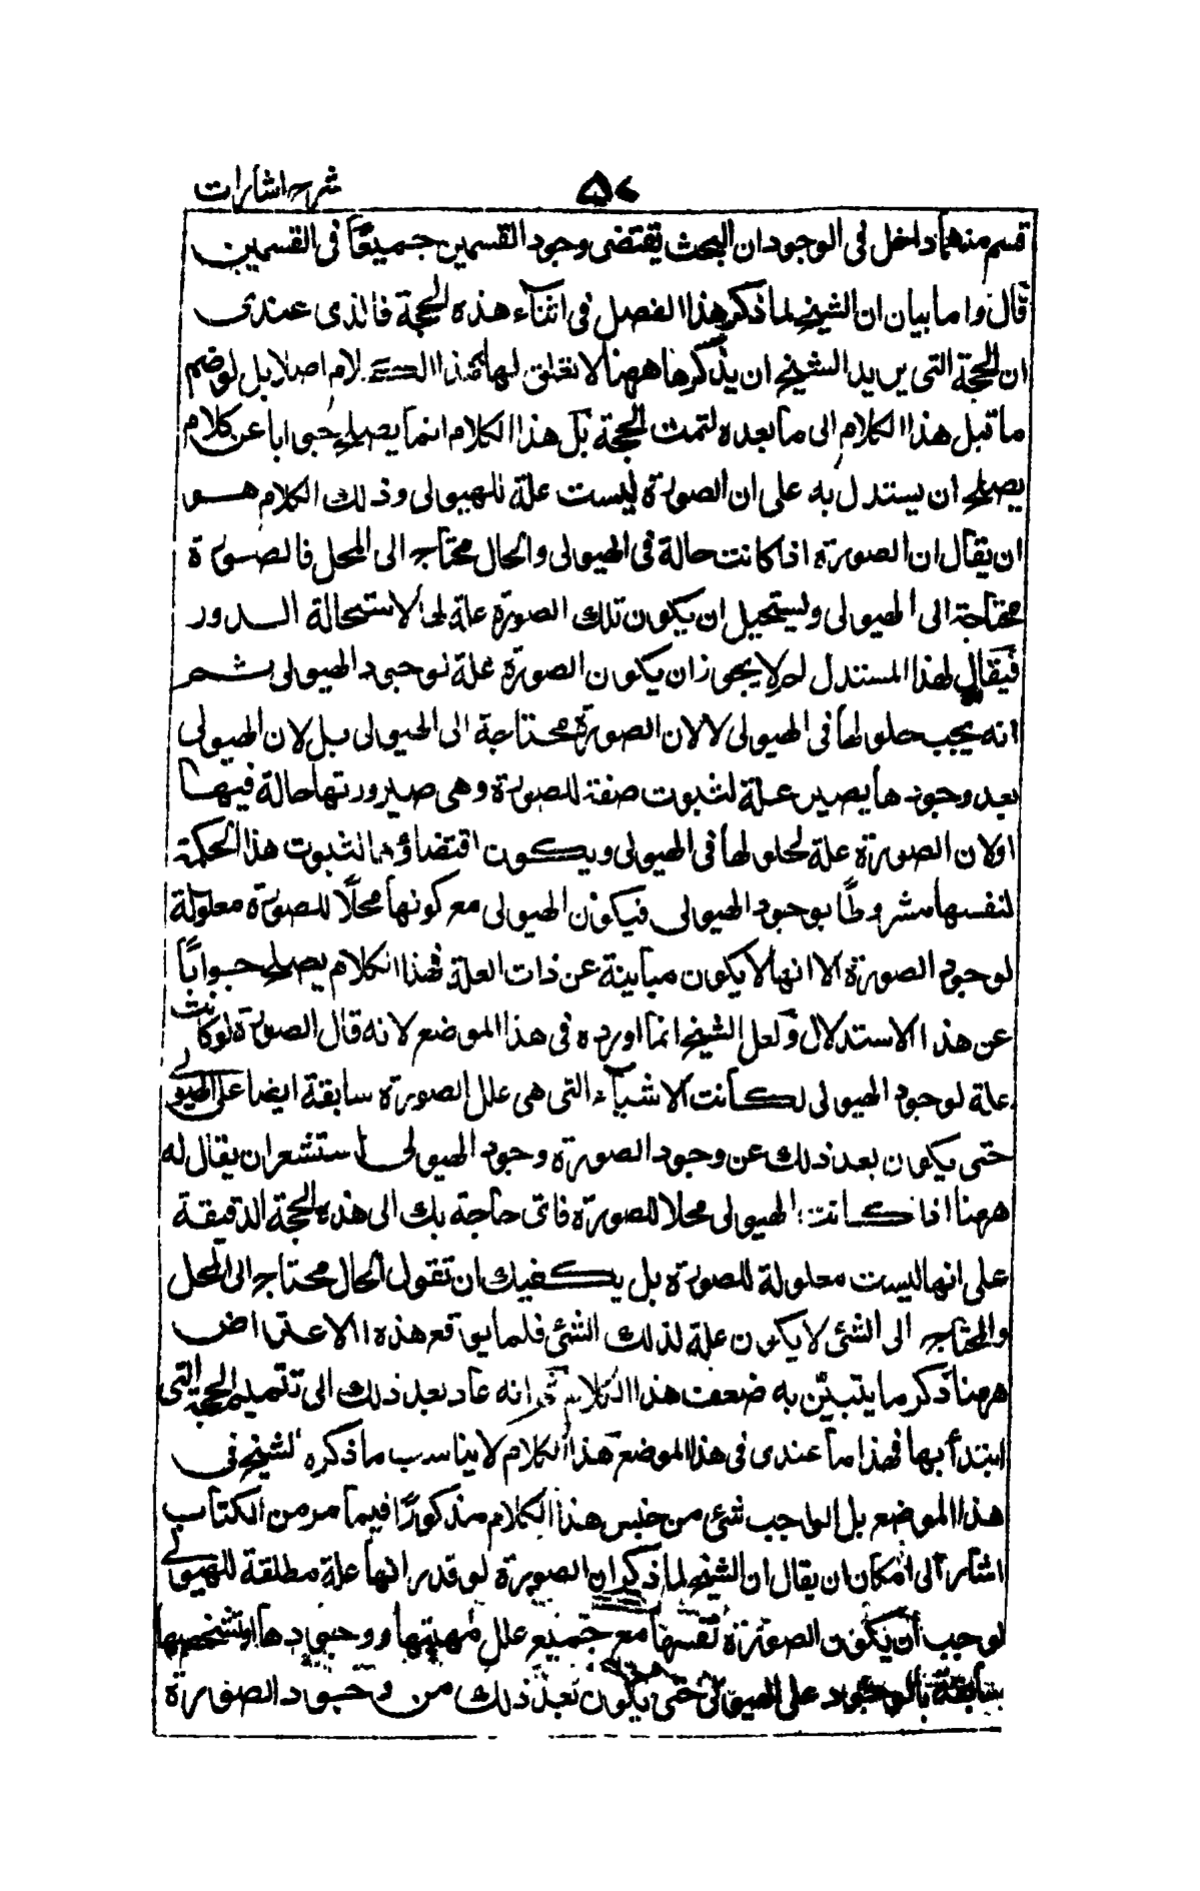 شرح اشارات
قسم منهما داخل فى الوجود ان البحث يقتضى وجود القسمين جميعًا فى القسمين
قال واما بيان ان الشيخ لما ذكر هذا الفصل فى اثناء هذه الحجة فالذى عندى
ان الحجة التى يريد الشيخ ان يذكرها ههنا لا تعلق لها بهذا الكلام اصلا بل لو ضم
ما قبل هذا الكلام الى ما بعده لتمت الحجة بل هذا الكلام انما يصلح جوابا عن كلام
يصلح ان يستدل به على ان الصورة ليست علة للهيولى وذلك الكلام هو
ان يقال ان الصورة اذا كانت حالة فى الهيولى والحال محتاج الى المحل فالصورة
محتاجة الى الهيولى ويستحيل ان يكون تلك الصورة علة لها لاستحالة الدور
فيقال لهذا المستدل لم لا يجوز ان يكون الصورة علة لوجود الهيولى ثم
انه يجب حلولها فى الهيولى لا لان الصورة محتاجة الى الهيولى بل لان الهيولى
بعد وجودها يصير علة لثبوت صفة للصورة وهى صيرورتها حالة فيها
او لان الصورة علة لحلولها فى الهيولى ويكون اقتضاؤها لثبوت هذا الحكمة
لنفسها مشروطًا بوجود الهيولى فيكون الهيولى مع كونها محلًا للصورة معلولة
لوجود الصورة الا انها لا يكون مباينة عن ذات العلة فهذا الكلام يصلح جوابًا
عن هذا الاستدلال ولعل الشيخ انما اورده فى هذا الموضع لانه قال الصورة لو كانت
علة لوجود الهيولى لكانت الاشياء التى هى علل الصورة سابقة ايضا على الهيولى
حتى يكون بعد ذلك عن وجود الصورة وجود الهيولى استشعر ان يقال له
ههنا اذا كانت الهيولى محلا للصورة فاى حاجة بك الى هذه الحجة الدقيقة
على انها ليست معلولة للصورة بل يكفيك ان تقول الحال محتاج الى المحل
والمحتاج الى الشئ لا يكون علة لذلك الشئ فلما يوقع هذه الاعتراض
ههنا ذكر ما يتبيّن به ضعف هذا الكلام ثم انه عاد بعد ذلك الى تتميم الحجة التى
ابتدأ بها فهذا ما عندى فى هذا الموضع هذا الكلام لا يناسب ما ذكره الشيخ فى
هذا الموضع بل الواجب شئ من جنس هذا الكلام مذكورًا فيما مر من الكتاب
اشار الى امكان ان يقال ان الشيخ لما ذكر ان الصورة لو قدر انها علة مطلقة للهيولى
لوجب أن يكون الصورة نفسها مع جميع علل مهيتها ووجودها وتشخصها
سابقة بالوجود على الهيولى حتى يكون بعد ذلك من وجود الصورة